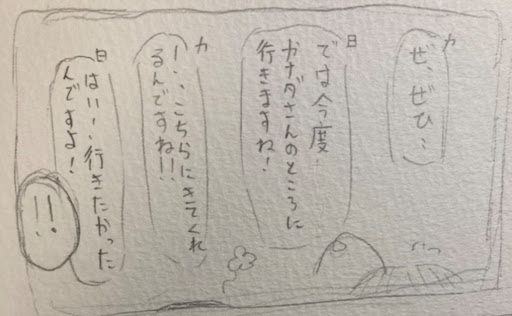 カ
ぜ、ぜひ…
日
では今度
カナダさんのところに
行きますね!
カ
!…こちらにきてくれ
るんですね!!
日
はい!行きたかった
んですよ!
!!